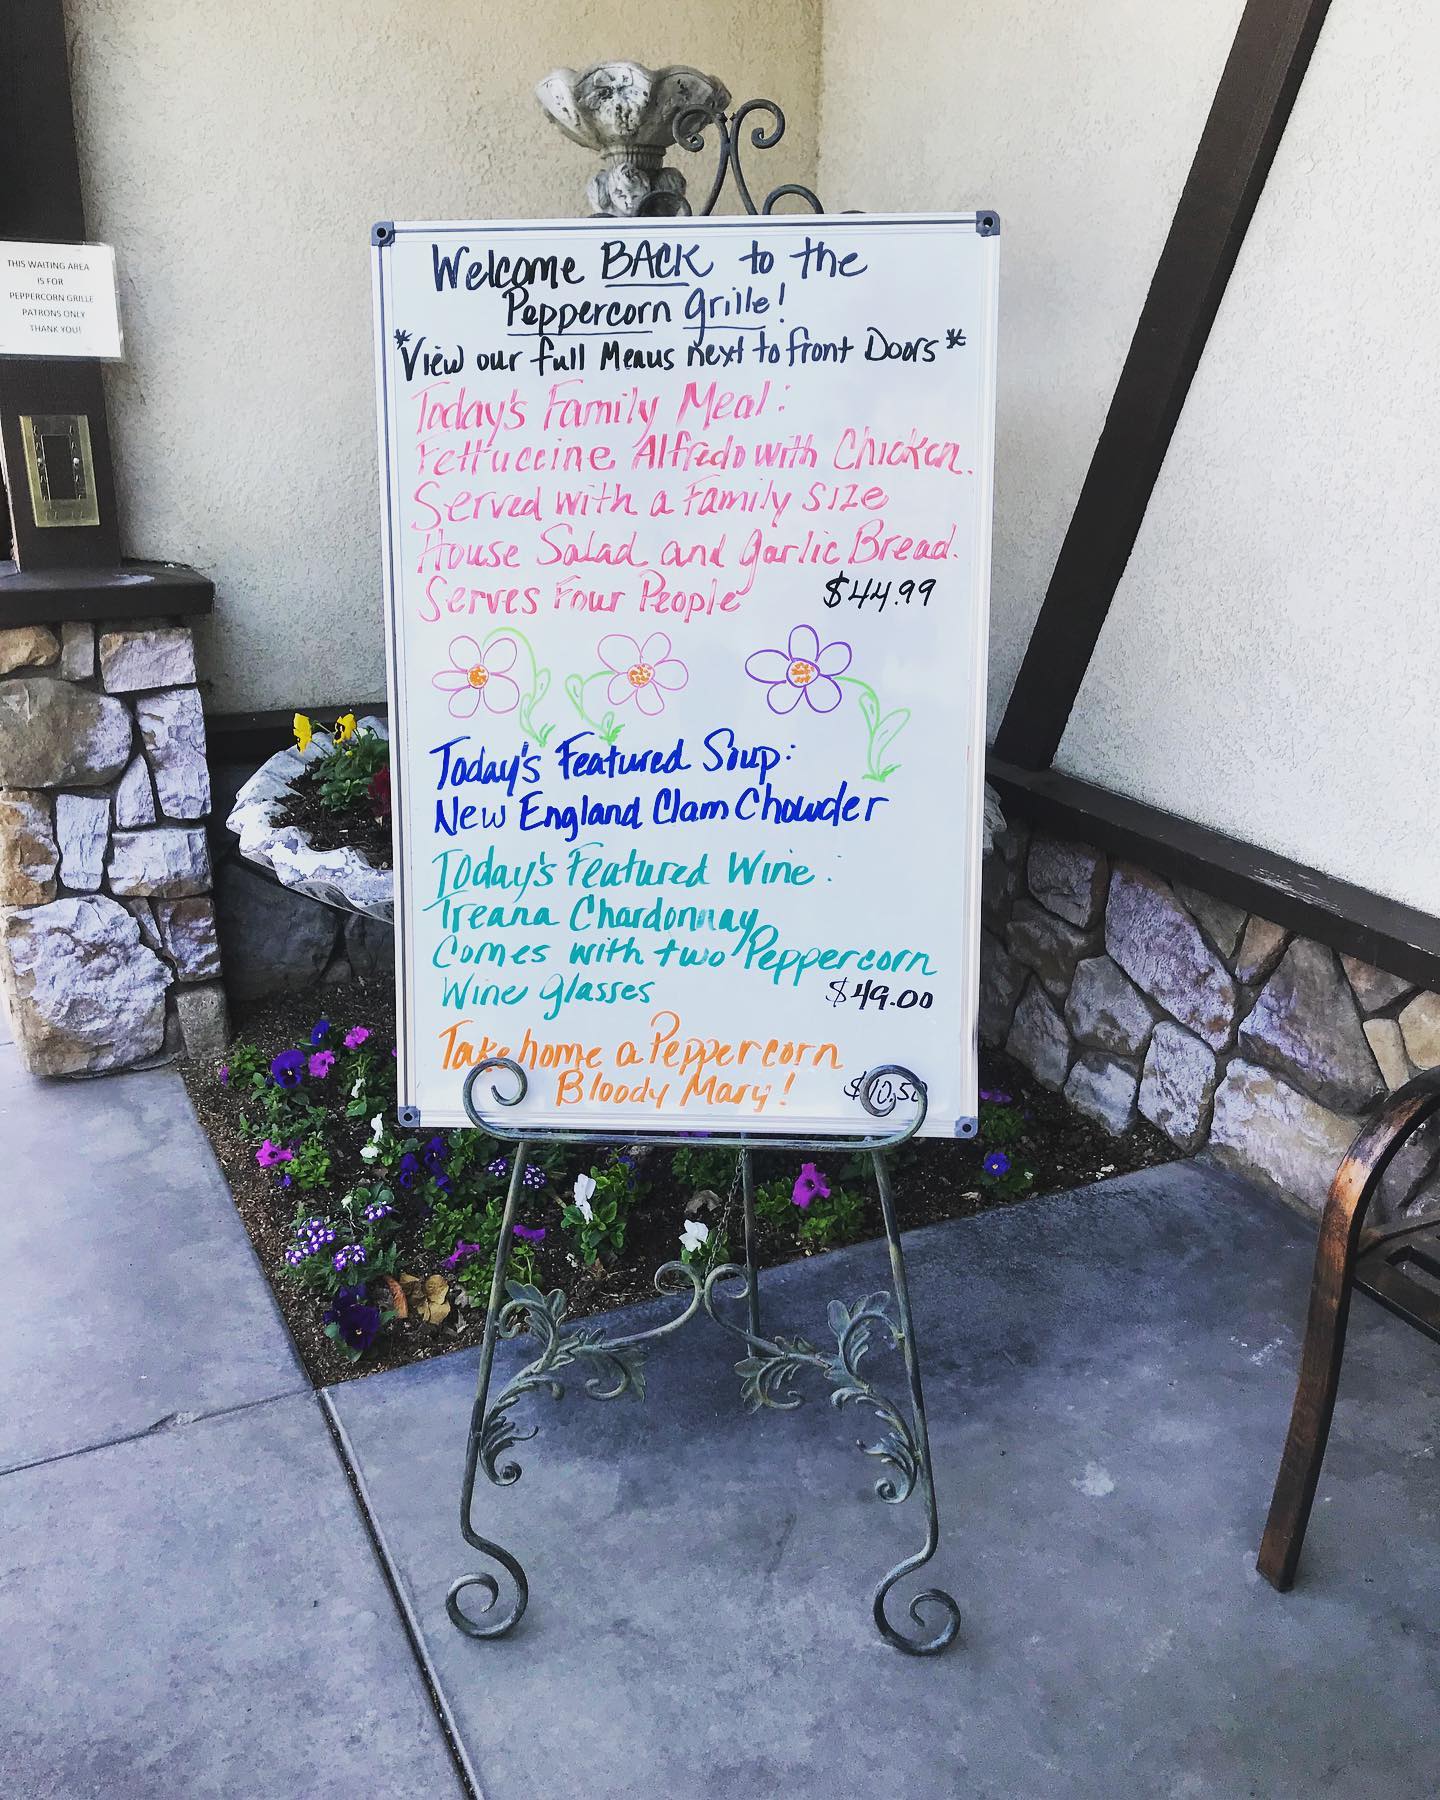 THIS WAITING AREA
IS FOR
PEPPERCORN GRILLE
PATRONS ONLY
THANK YOU!
Welcome BACK to the
Peppercorn Grille!
*View our full Menus next to front Doors*
Today's Family Meal:
Fettuccine Alfredo with Chicken.
Served with a Family Size
House Salad and Garlic Bread.
Serves Four People $44.99
Today's Featured Soup:
New England Clam Chowder
Today's Featured Wine:
Treana Chardonnay
Comes with two Peppercorn
Wine Glasses $49.00
Take home a Peppercorn
Bloody Mary! $10.50